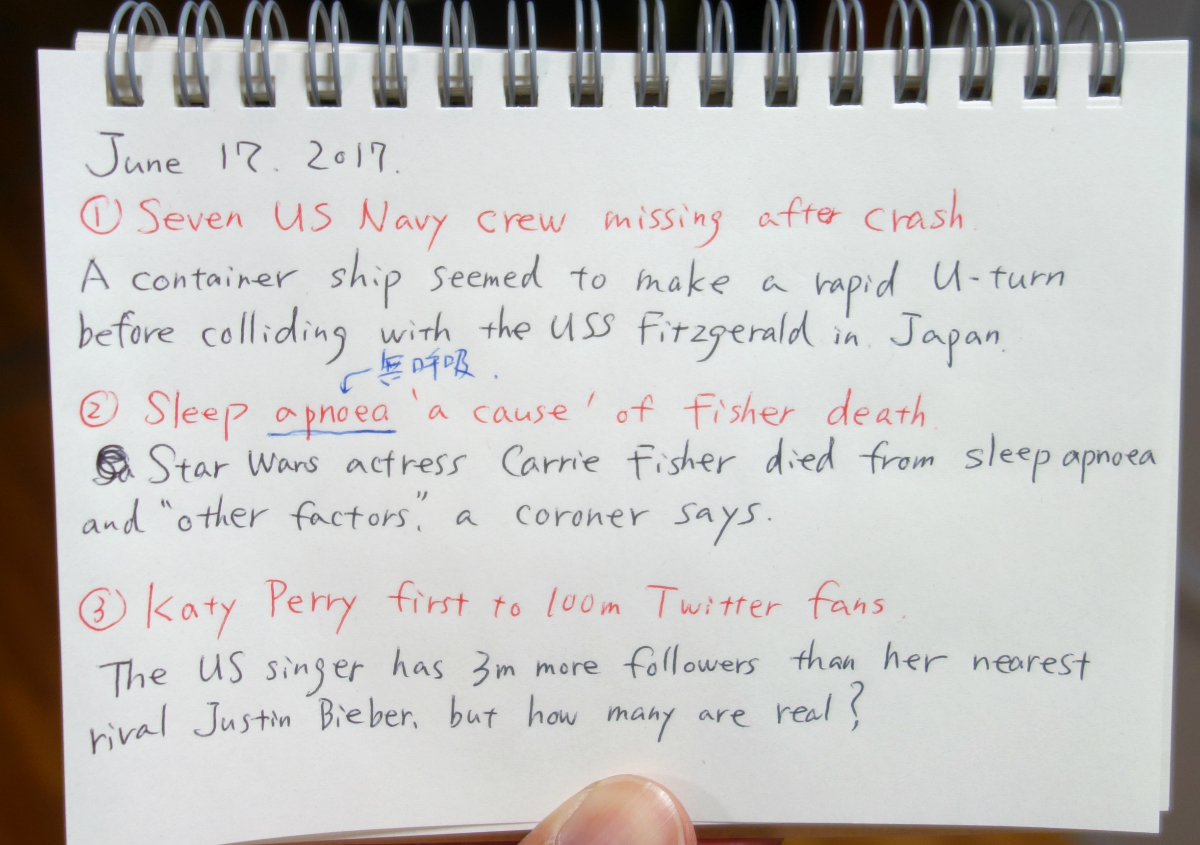 June 17. 2017.
① Seven US Navy crew missing after crash.
A container ship seemed to make a rapid U-turn
before colliding with the USS Fitzgerald in Japan.
無呼吸.
② Sleep apnoea 'a cause' of Fisher death.
Star Wars actress Carrie Fisher died from sleep apnoea
and "other factors," a coroner says.
③ Katy Perry first to 100m Twitter fans.
The US singer has 3m more followers than her nearest
rival Justin Bieber, but how many are real?